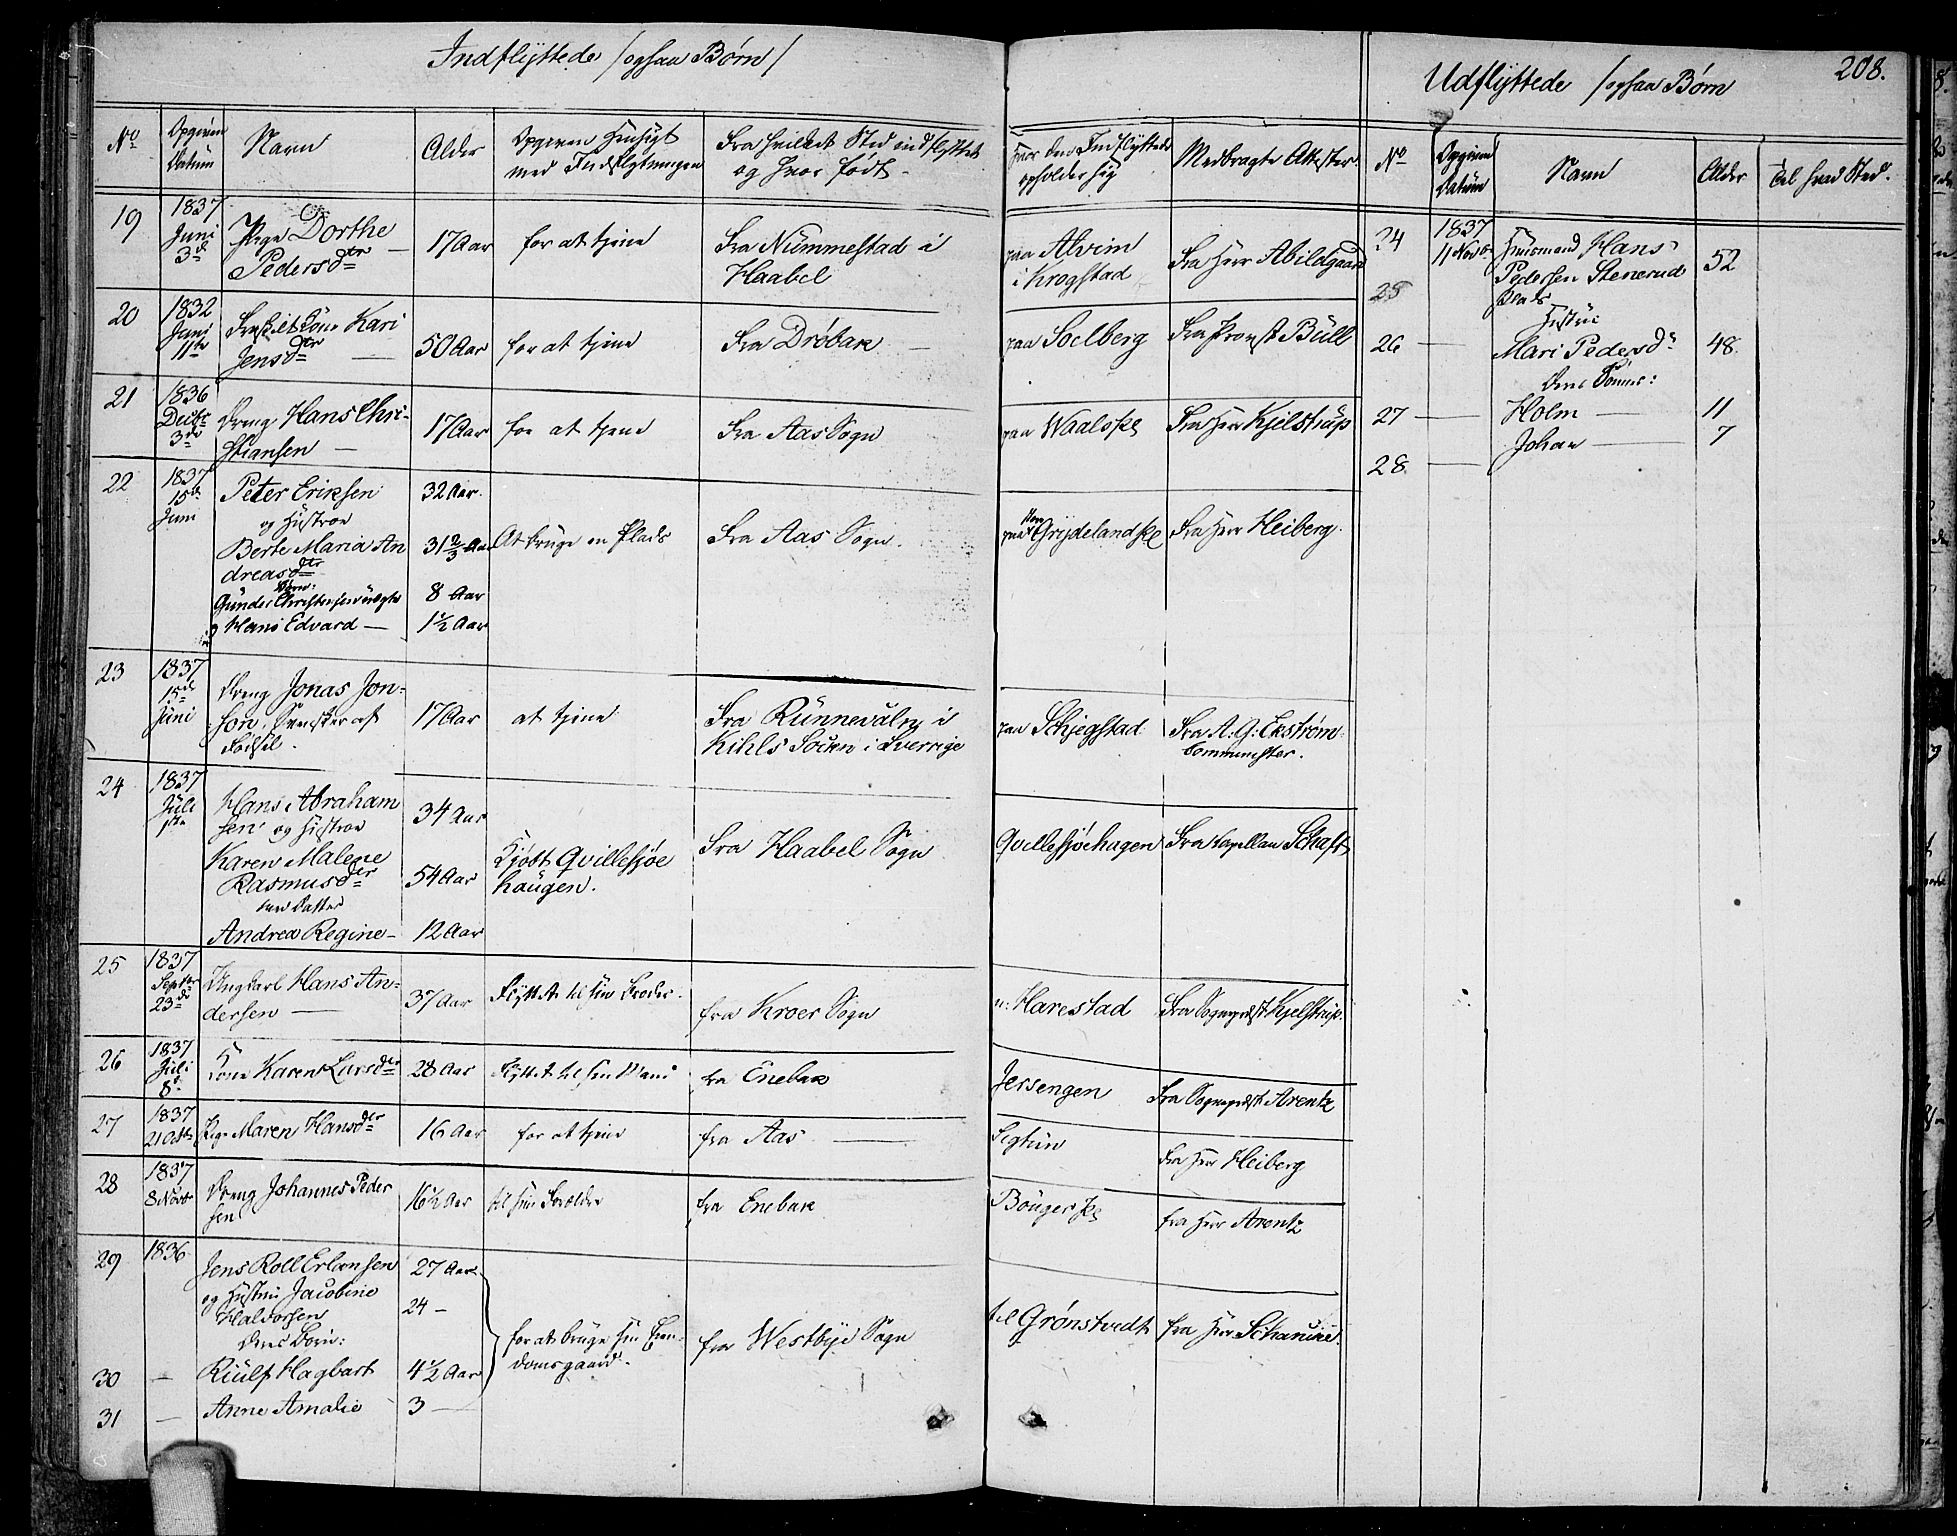 Indflyttede /ogsaa Børn/
Udflyttede /ogsaa Børn
208.
No
Opgiven
Datum
Navn
Alder
Opgiven Hensigt
med Indflytningen
Fra hvilket Sted indflyttet
og hvor født
Hvor den Indflyttede
opholder sig
Medbragte Attester
No
Opgiven
Datum
Navn
Alder
Til hvad Sted.
19
1837
Juni
3d
Pige Dorthe
Pedersdtr
17 Aar
for at tjene
Fra Nummestad i
Haabel
paa Alvim
i Krogstad
Fra Herr Abildgaard
20
1832
Juni
11te
Kari
Jensdtr
50 Aar
for at tjene
Fra Drøbak
paa Soelberg
Fra Provst Büll
21
1836
Decbr
3die
Dreng Hans Chri-
stiansen
17 Aar
for at tjene
Fra Aas Sogn
paa
Fra Herr Kjelstrup
22
1837
15de
Juni
Peter Eriksen
og Hustroe
Berte Maria An
dreasdtr
Børn:
Gunder Christensen uægte
Hans Edvard
32 Aar.
31 2/3 Aar
8 Aar
1 1/2 Aar
At bruge en Plads
Fra Aas Sogn.
paa Grydeland
Fra Herr Heiberg.
23
1837
15de
Juni
Dreng Jonas Jon-
son, Svensker af
Fødsel.
17 Aar
at tjene
Fra Runnevaln i
Kihls Socken i Sverrige
paa Schjegstad
Fra A. G. Ekstrøm
Comminister.
24
1837
Juli
1ste
Hans Abraham
sen og Hustroe
Karen Malene
Rasmusdtr
med Datter
Andrea Regine
34 Aar
54 Aar
12 Aar
Kjøbt Qvillesjøe
haugen.
Fra Haabel Sogn
Qvillesjøehagen
Fra Kapellan Schaft
25
1837
Septbr
23de
Ungkarl Hans An-
dersen
37 Aar
Flyttet til sin Broder.
fra Kroer Sogn
Harestad
Fra Sogneprest Kjelstrup.
26
1837
Juli
8de
Kone Karen Larsdtr
28 Aar
Flyttet til sin Mand
fra Enebak
Jersengen
Fra Sogneprest Arentz
27
1837
21 Octbr
Pige Maren Hansdtr
16 Aar
for at tjene
fra Aas
Sigtun
Fra Herr Heiberg
28
1837
8 Novbr
Dreng Johannes Peder
sen
16 1/2 Aar
til sine Forældre
fra Enebak
fra Herr Arentz
29
1836
Jens Roll Erlansen
og Hustrue Jacobine
Halvorsen
Deres Børn:
27 Aar
24
for at bruge sin Eien-
domsgaard.
fra Westbye Sogn
til Grønstvedt
fra Herr
30
Riulf Hagbart
4 1/2 Aar
31
Anne Amalie
3
24
1837
11 Novbr
Huusmand Hans
Pedersen Stenerud
Plads
52
25
Hustrue
26
Mari Pedersdr
48
Deres Sønner:
27
Holm
11
28
Johan
7